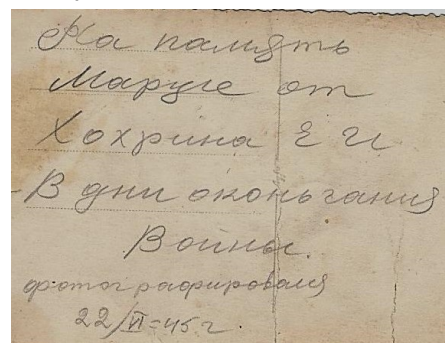 На память
Марусе от
Хохрина Е И
В дни оконьчания
Воины.
фотографировался
22/VI=45 г.